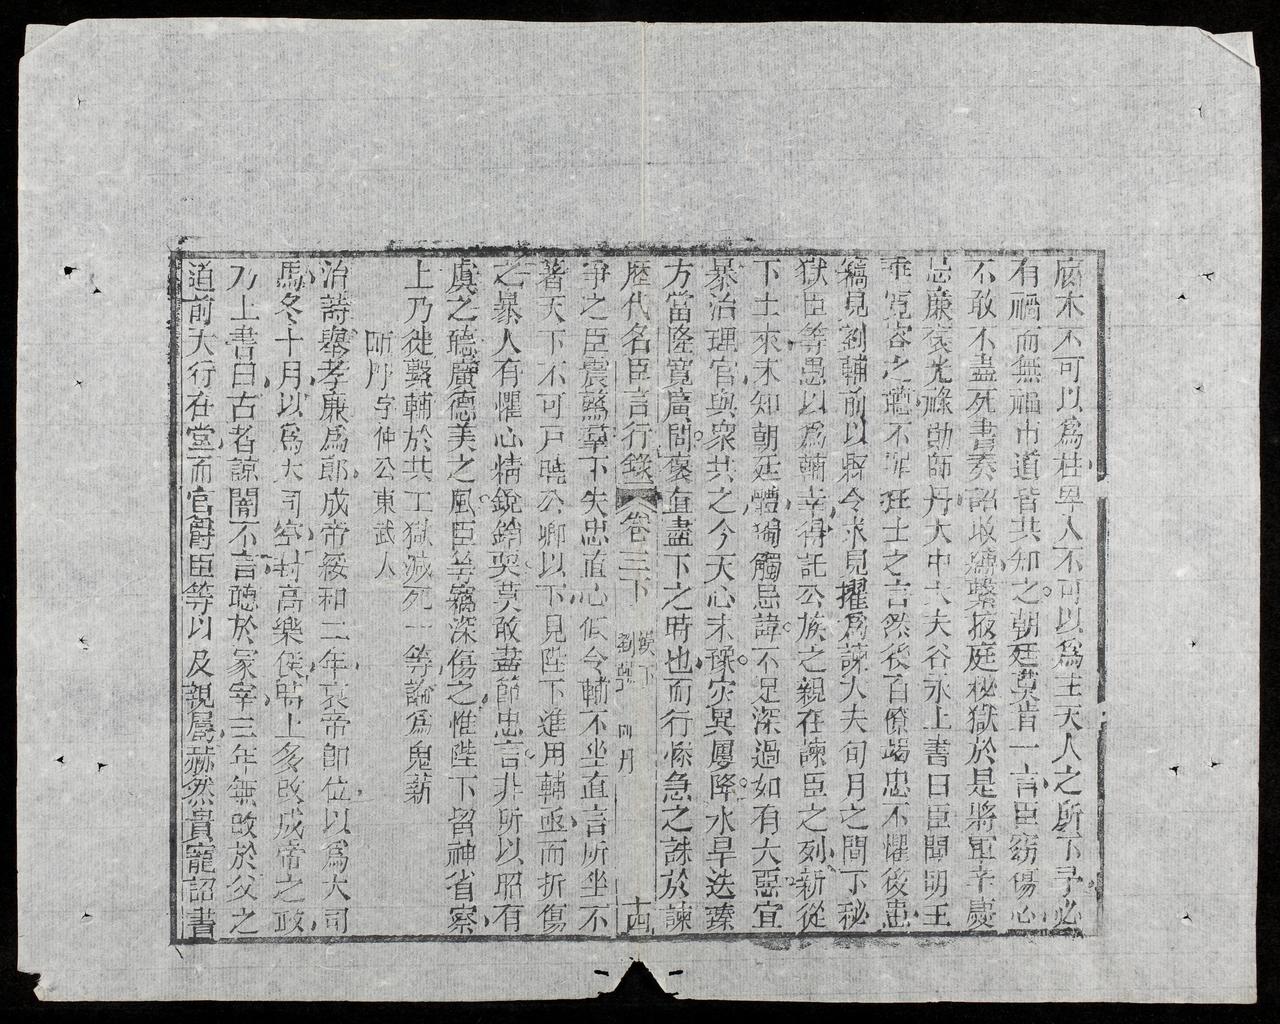 腐木不可以爲柱卑人不可以爲主天人之所不予必
有禍而無福市道皆共知之朝廷莫肯一言臣竊傷心
不敢不盡死書奏詔收縛繫掖庭秘獄於是將軍辛慶
忌廉褒光祿勲師丹大中大夫谷永上書曰臣聞明王
垂寬容之聽不罪狂士之言然後百僚竭忠不懼後患
竊見劉輔前以縣令求見擢爲諫大夫旬月之間下秘
獄臣等愚以爲輔幸得託公族之親在諫臣之列新從
下土來未知朝廷體獨觸忌諱不足深過如有大惡宜
暴治理官與衆共之今天心未豫灾異屢降水旱迭臻
方當隆寬廣問褒直盡下之時也而行慘急之誅於諫
歷代名臣言行錄 卷三下 劉輔 師丹 十四
爭之臣震驚羣下失忠直心假令輔不坐直言所坐不
著天下不可戸曉公卿以下見陛下進用輔亟而折傷
之暴人有懼心精銳銷耎莫敢盡節忠言非所以昭有
虞之聽廣德美之風臣等竊深傷之惟陛下留神省察
上乃徙繫輔於共工獄減死一等論爲鬼薪
師丹字仲公東武人
治詩舉孝廉爲郎成帝綏和二年哀帝卽位以爲大司
馬冬十月以爲大司空封高樂侯時上多改成帝之政
乃上書曰古者諒闇不言聽於冢宰三年無改於父之
道前大行在堂而官爵臣等以及親屬赫然貴寵詔書